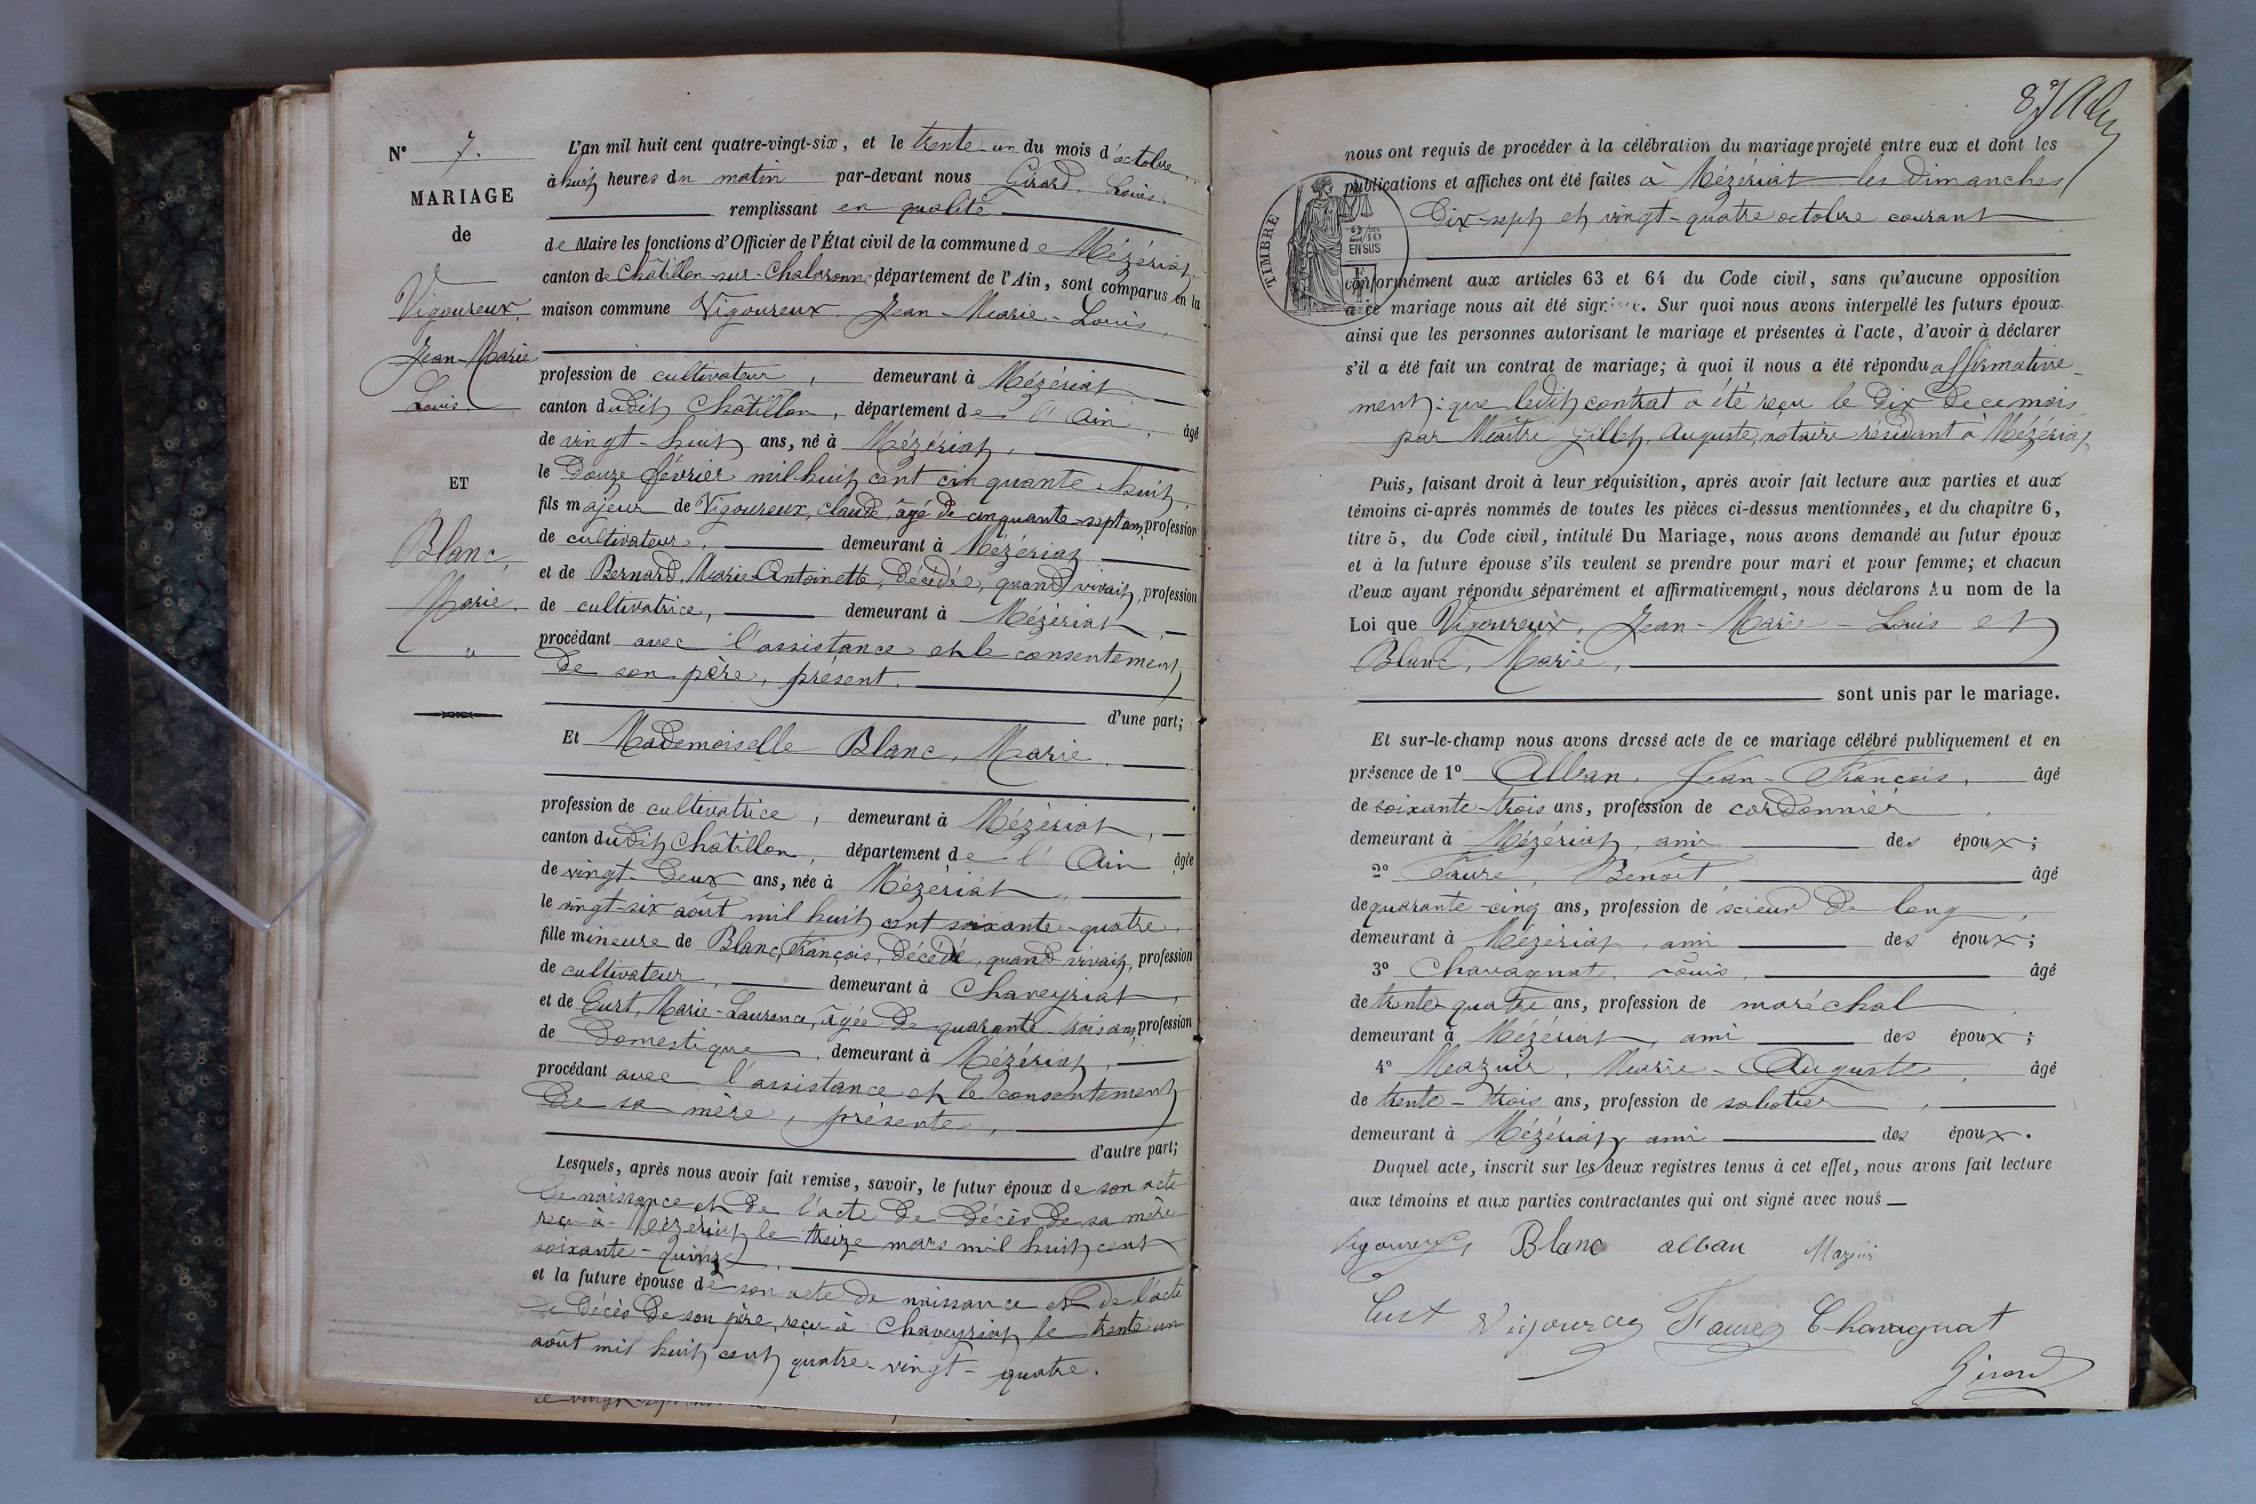 N° 7.
MARIAGE
de
Vigoureux,
Jean-Marie
Louis.
ET
Blanc,
Marie.
"
L'an mil huit cent quatre-vingt-six, et le trente-un du mois d'octobre,
à huit heures du matin par-devant nous Girard, Louis,
remplissant en qualité
de Maire les fonctions d'Officier de l'État civil de la commune de Mézériat,
canton de Châtillon-sur-Chalaronne, département de l'Ain, sont comparus en la
maison commune Vigoureux Jean-Marie-Louis,
profession de cultivateur, demeurant à Mézériat
canton dudit Châtillon, département de l'Ain, âgé
de vingt-huit ans, né à Mézériat,
le douze février mil huit cent cinquante-huit,
fils majeur de Vigoureux, Claude, âgé de cinquante-sept ans, profession
de cultivateur, demeurant à Mézériat
et de Bernard, Marie-Antoinette, décédée, quand vivait, profession
de cultivatrice, demeurant à Mézériat,
procédant avec l'assistance et le consentement
de son père, présent.
d'une part;
Et Mademoiselle Blanc, Marie,
profession de cultivatrice, demeurant à Mézériat,
canton dudit Châtillon, département de l'Ain âgée
de vingt-deux ans, née à Mézériat,
le vingt-six août mil huit cent soixante-quatre,
fille mineure de Blanc, François, décédé, quand vivait, profession
de cultivateur, demeurant à Chaveyriat,
et de Curt, Marie-Laurence, âgée de quarante-trois ans, profession
de domestique, demeurant à Mézériat,
procédant avec l'assistance et le consentement
de sa mère, présente,
d'autre part;
Lesquels, après nous avoir fait remise, savoir, le futur époux de son acte
de naissance et de l'acte de décès de sa mère
reçu à Mézériat le treize mars mil huit cent
soixante-quinze,
et la future épouse de son acte de naissance et de l'acte
de décès de son père, reçu à Chaveyriat le trente-un
août mil huit cent quatre-vingt-quatre.
87
nous ont requis de procéder à la célébration du mariage projeté entre eux et dont les
publications et affiches ont été faites à Mézériat les Dimanches
dix-sept et vingt-quatre octobre courant
TIMBRE
2/10
EN SUS
conformément aux articles 63 et 64 du Code civil, sans qu'aucune opposition
à ce mariage nous ait été signifiée. Sur quoi nous avons interpellé les futurs époux
ainsi que les personnes autorisant le mariage et présentes à l'acte, d'avoir à déclarer
s'il a été fait un contrat de mariage; à quoi il nous a été répondu affirmative-
ment: que ledit contrat a été reçu le dix de ce mois
par Maître Gillet, Auguste, notaire résidant à Mézériat
Puis, faisant droit à leur réquisition, après avoir fait lecture aux parties et aux
témoins ci-après nommés de toutes les pièces ci-dessus mentionnées, et du chapitre 6,
titre 5, du Code civil, intitulé Du Mariage, nous avons demandé au futur époux
et à la future épouse s'ils veulent se prendre pour mari et pour femme; et chacun
d'eux ayant répondu séparément et affirmativement, nous déclarons Au nom de la
Loi que Vigoureux, Jean-Marie-Louis et
Blanc, Marie,
sont unis par le mariage.
Et sur-le-champ nous avons dressé acte de ce mariage célébré publiquement et en
présence de 1° Alban, Jean-François, âgé
de soixante-trois ans, profession de cordonnier,
demeurant à Mézériat, ami des époux;
2° Faure, Benoît, âgé
de quarante-cinq ans, profession de scieur de long,
demeurant à Mézériat, ami des époux;
3° Chavagnat, Louis, âgé
de trente-quatre ans, profession de maréchal,
demeurant à Mézériat, ami des époux;
4° Mazuir, Marie-Auguste, âgé
de trente-trois ans, profession de sabotier,
demeurant à Mézériat, ami des époux.
Duquel acte, inscrit sur les deux registres tenus à cet effet, nous avons fait lecture
aux témoins et aux parties contractantes qui ont signé avec nous
Vigoureux Blanc alban Mazuir
Curt Vigoureux Faure Chavagnat
Girard